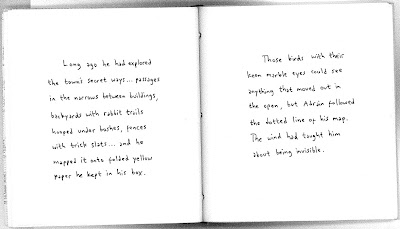 Long ago he had explored
the town's secret ways... passages
in the narrows between buildings,
backyards with rabbit trails
hooped under bushes, fences
with trick slats... and he
mapped it onto folded yellow
paper he kept in his box.
Those birds with their
keen marble eyes could see
anything that moved out in
the open, but Adrian followed
the dotted line of his map.
The wind had taught him
about being invisible.